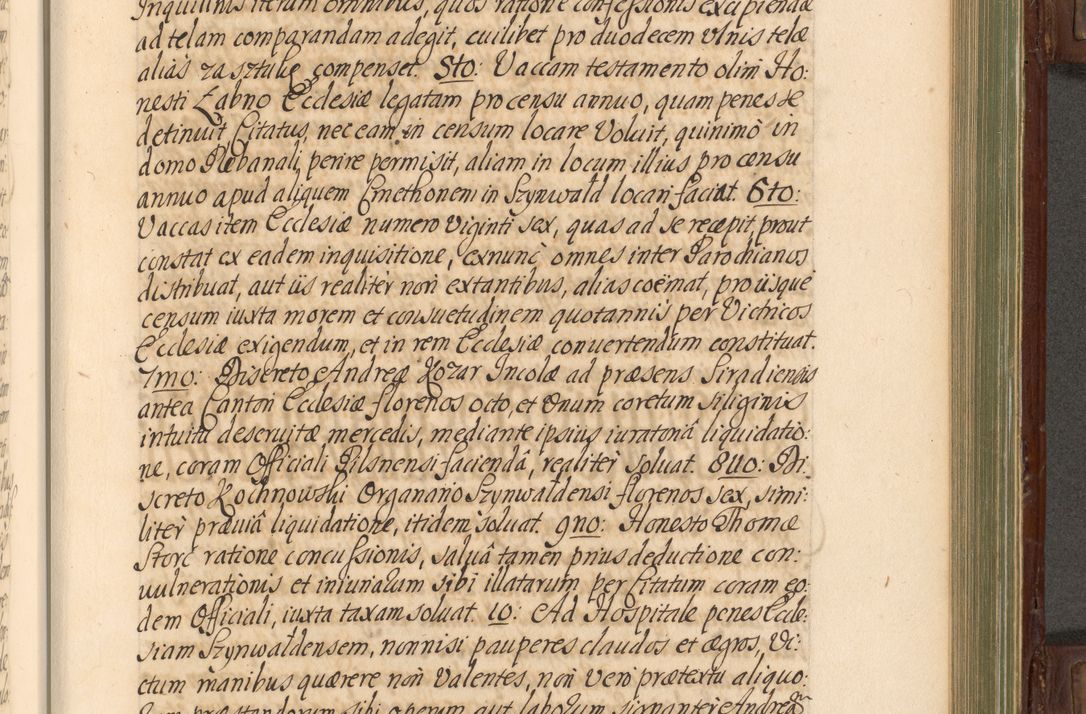 Inquilinis iterum omnibus, quos ratione confessionis excipiendæ
ad telam comparandam adegit, cuilibet pro duodecem Vlnis telæ
alias za sztukę compenset. 5to: Vaccam testamento olim Ho:
nesti Łabno Ecclesiæ legatam pro censu annuo, quam penes se
detinuit Citatus, nec eam in censum locare Voluit, quinimò in
domo Plebanali, perire permisit, aliam in locum illius pro censu
annuo apud aliquem Cmethonem in Szynwałd locari faciat. 6to:
Vaccas item Ecclesiæ numero Viginti sex, quas ad se recepit, prout
constat ex eadem inquisitione, exnunc omnes inter Parochianos
distribuat, aut iis realiter non extantibus, alias coëmat, pro iisque
censum iuxta morem et consuetudinem quotannis per Vitricos
Ecclesiæ exigendum, et in rem Ecclesiæ conuertendum constituat.
7mo: Discreto Andreæ Kozar Incolæ ad præsens Siradiensis
antea Cantori Ecclesiæ florenos octo, et Vnum coretum siliginis
intuitu deseruitæ mercedis, mediante ipsius iuratoriâ liquidatio:
ne, coram Officiali Pilsnensi faciendâ, realiter soluat. 8uo: Di:
screto Kochnowski Organario Szynwałdensi florenos sex, simi:
liter præuiâ liquidatione, itidem soluat. 9no: Honesto Thomæ
Storc ratione concussionis, saluâ tamen prius deductione con:
uulnerationis et iniuriarum sibi illatarum per Citatum coram eo:
dem Officiali, iuxta taxam soluat. 10: Ad Hospitale penes Eccle:
siam Szynwałdensem, nonnisi pauperes claudos et ægros, Vi:
ctum manibus quærere non Valentes, non Vero prætextu aliquo:
rum præstandorum sibi operum aut laborum signanter Andreæ